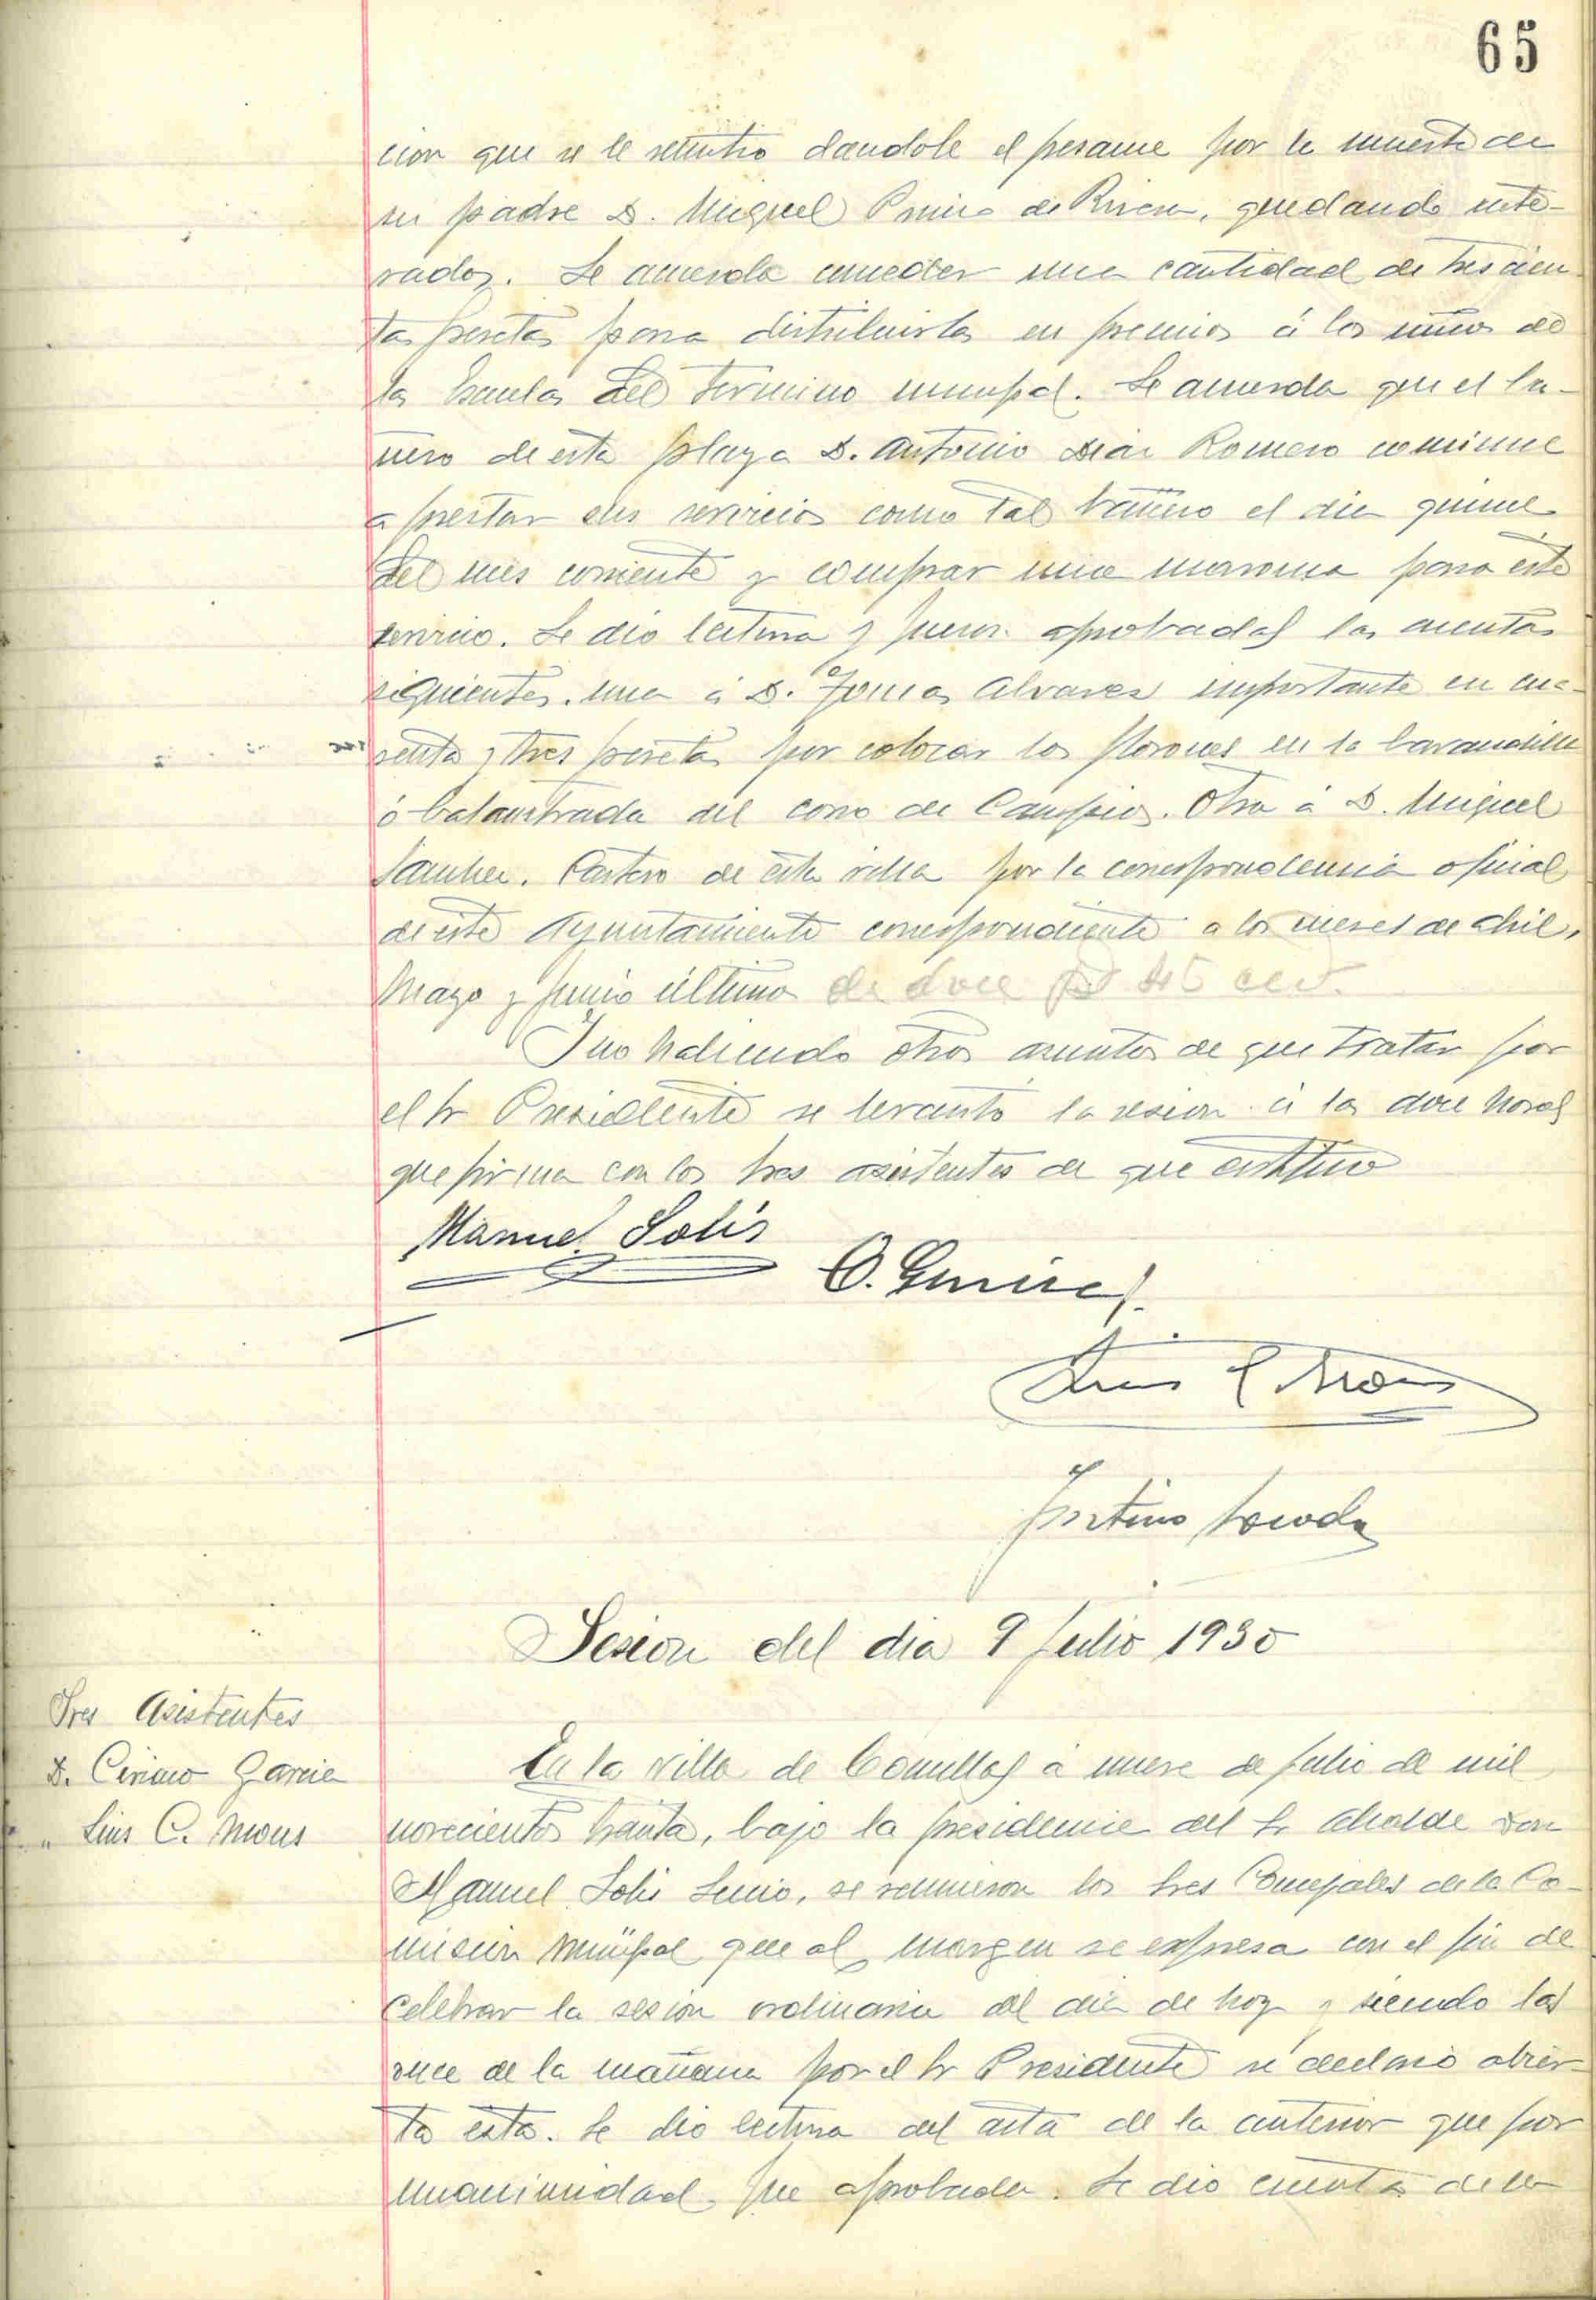 65
cion que se le remitio dandole el pesame por la muerte de
su padre D. Miguel Primo de Rivera, quedando ente-
rados. Se acuerda conceder una cantidad de trescien
tas pesetas para distribuirlas en premios á los niños de
las Escuelas del termino municipal. Se acuerda que el ba-
ñero de esta playa D. Antonio Diaz Romero comience
a prestar sus servicios como tal bañero el dia quince
del mes corriente y comprar una maroma para este
servicio. Se dio lectura y fueron aprobadas las cuentas
siguientes. una á D. Tomas Alvarez importante en cua-
renta y tres pesetas por colocar los florones en la barandilla
ó balaustrada del corro de Campios. Otra á D. Miguel
Sanchez. Cartero de esta villa por la correspondencia oficial
de este Ayuntamiento correspondiente a los meses de Abril,
Mayo y Junio último de doce
Y no habiendo otros asuntos de que tratar por
el Sr Presidente se levantó la sesion á las doce horas
que firma con los Sres asistentes de que certifico
Manuel Solís
Sesion del dia 9 Julio 1930
Sres Asistentes
D. Ciriaco Garcia
" Luis C.
En la Villa de Comillas á nueve de Julio de mil
novecientos treinta, bajo la presidencia del Sr Alcalde Don
Manuel Solis, se reunieron los Sres Concejales de la Co-
mision Municipal que al margen se expresa con el fin de
celebrar la sesion ordinaria del dia de hoy y siendo las
once de la mañana por el Sr Presidente se declaró abier-
ta esta. Se dio lectura del acta de la anterior que por
unanimidad fue aprobada. Se dio cuenta de la